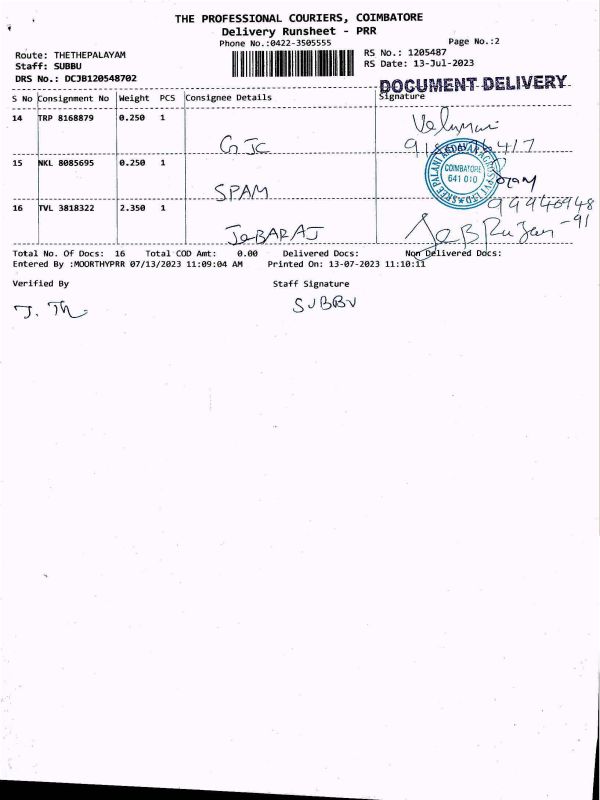 THE PROFESSIONAL COURIERS, COIMBATORE
Delivery Runsheet - PRR
Phone No.:0422-3505555
Page No.:2
Route: THETHEPALAYAM
RS No.: 1205487
Staff: SUBBU
RS Date: 13-Jul-2023
DRS No.: DCJB120548702
DOCUMENT DELIVERY
S No Consignment No Weight PCS Consignee Details Signature
14 TRP 8168879 0.250 1
GJC
15 NKL 8085695 0.250 1
COIMBATORE
641 010
SPAM
16 TVL 3818322 2.350 1
JeBARAJ
Total No. Of Docs: 16 Total COD Amt: 0.00 Delivered Docs: Non Delivered Docs:
Entered By :MOORTHYPRR 07/13/2023 11:09:04 AM Printed On: 13-07-2023 11:10:11
Verified By Staff Signature
SUBBU